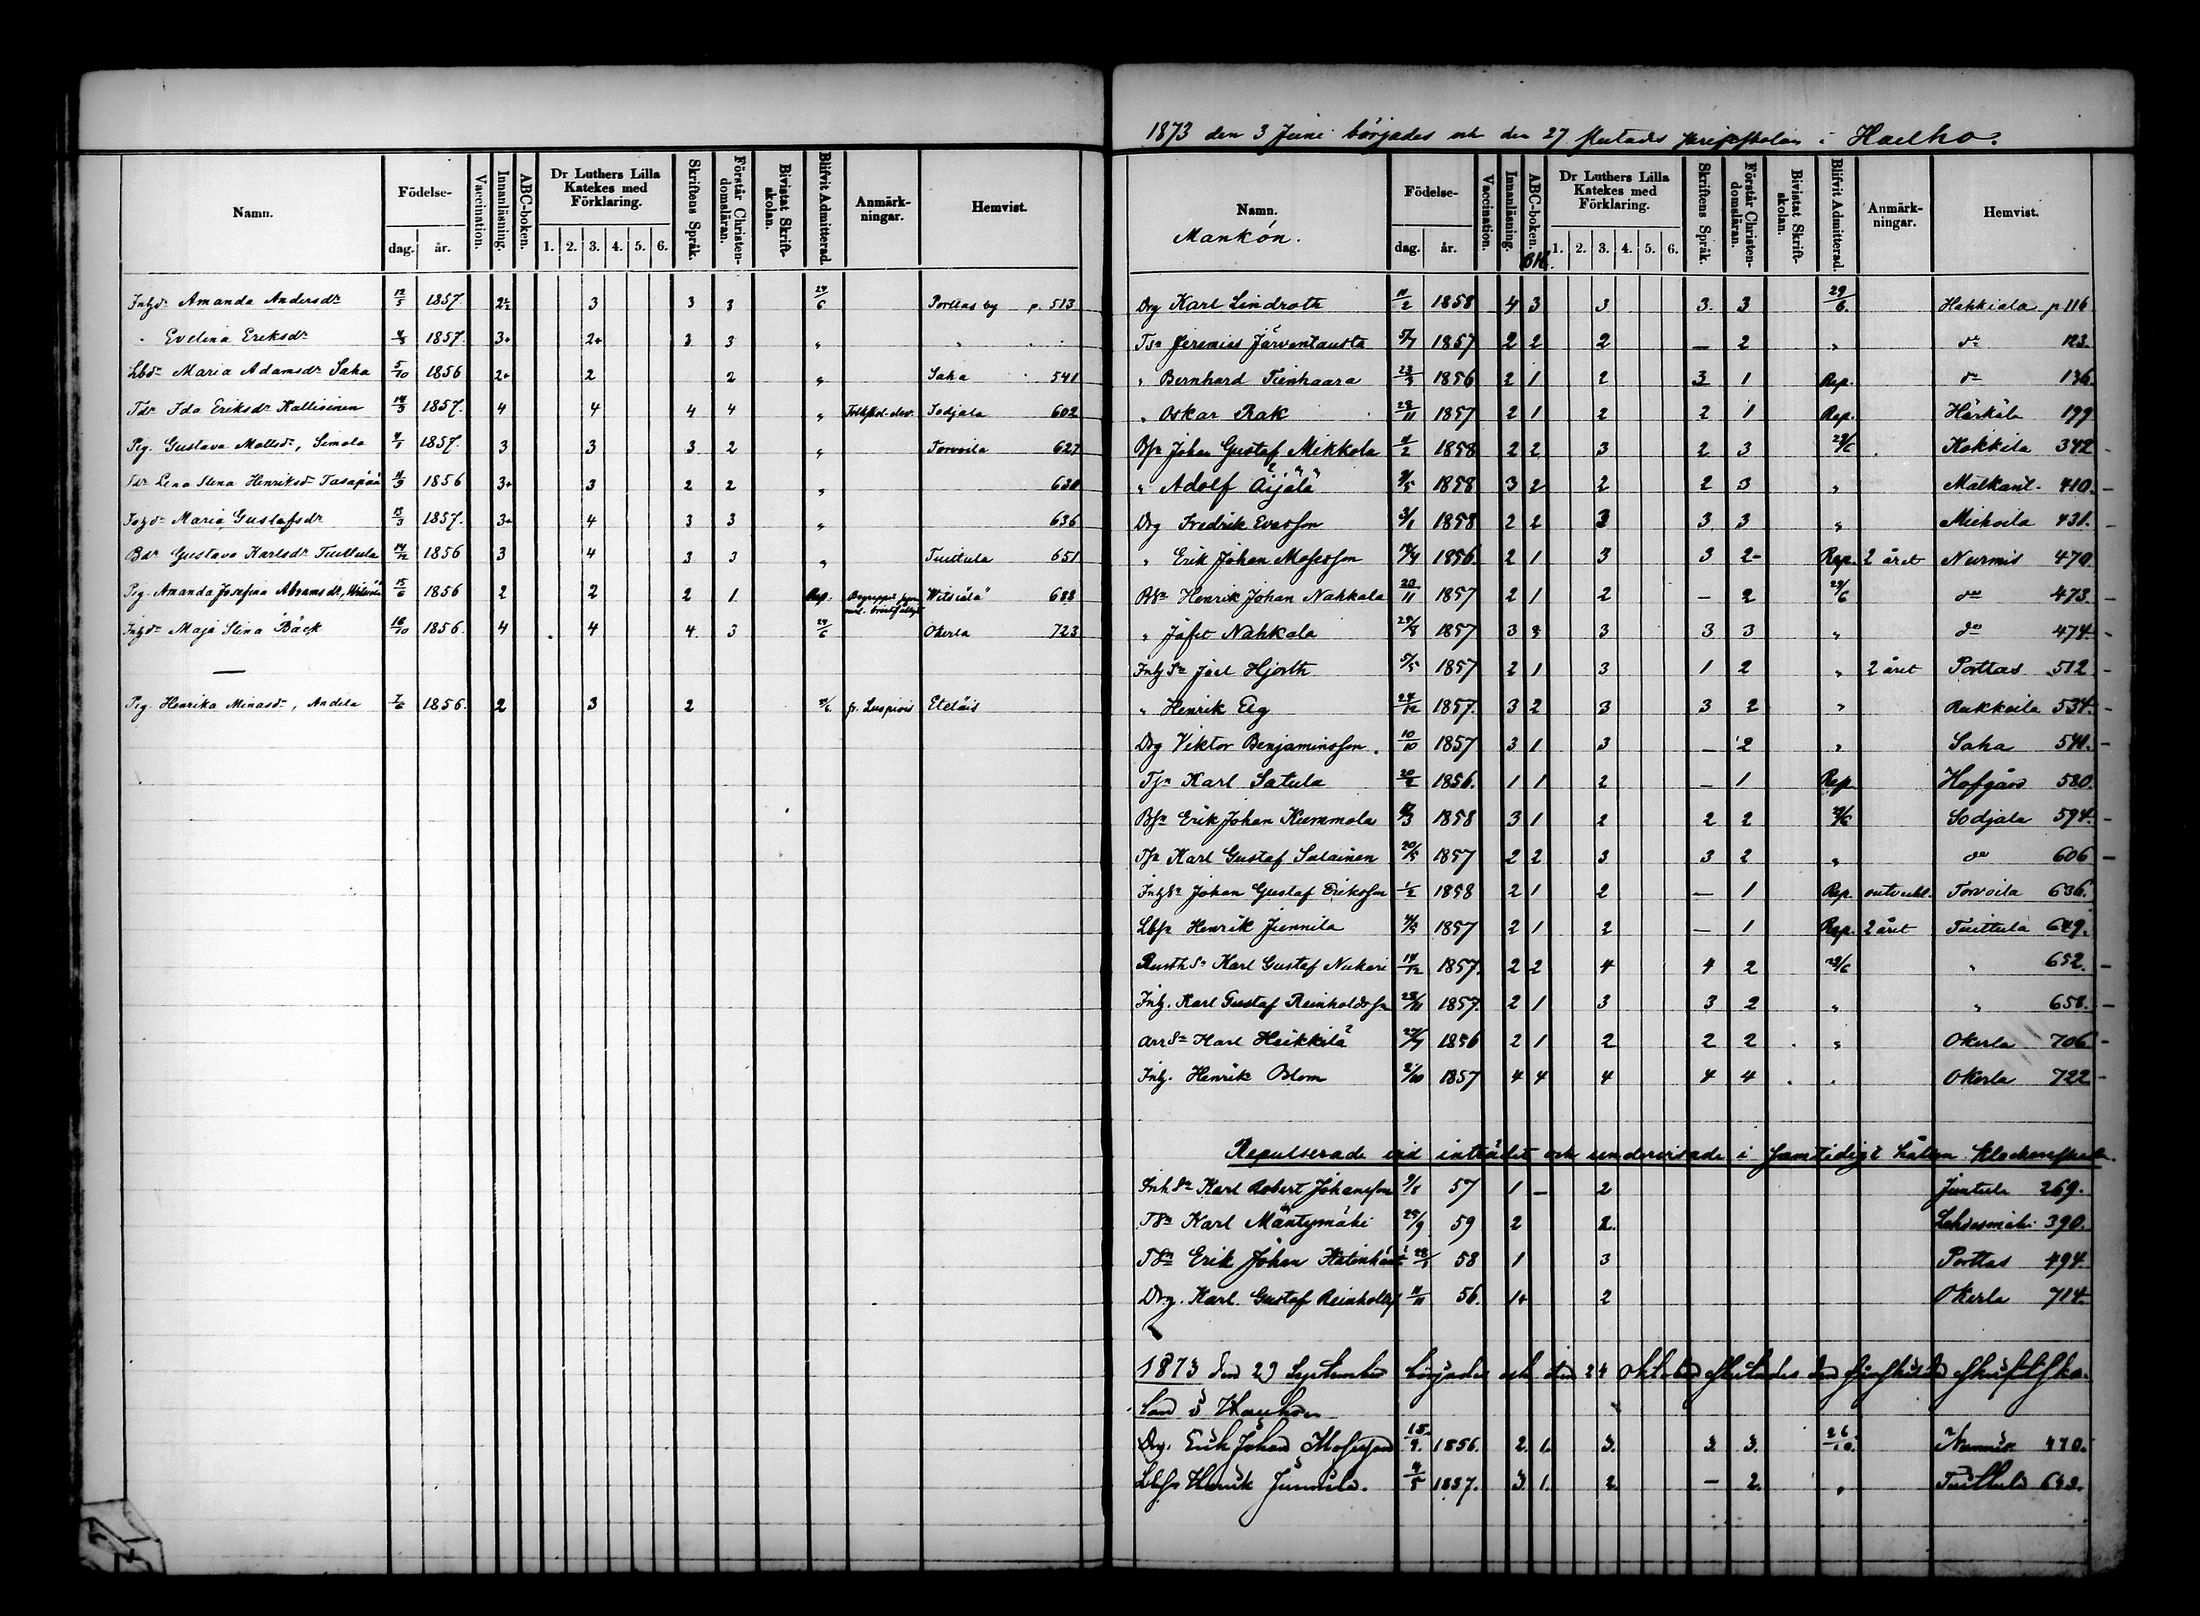 Namn. Födelse- dag. år. Vaccination. Innanläsning. ABC-boken. Dr Luthers Lilla Katekes med Förklaring. 1. 2. 3. 4. 5. 6. Skriftens Språk. Förstår Christendomsläran. Bivistat Skriftskolan. Blifvit Admitterad. Anmärkningar. Hemvist.
Amanda Andersdr 12/5 1857. 3 3 3 29/6 Porttas by p. 513
Evelina Eriksdr 1857. 3+ 2+ 3 3 "
Lbdr Maria Adamsdr Saha 5/10 1856 2+ 2 2 " Saha 541
Tdr Ida Eriksdr Kallisinen 14/3 1857. 4 4 4 4 " Sodjala 602
Pig. Gustava Simola 1857. 3 3 3 2 " Torvoila 627
Tdr Lena Stina Henriksdr 1856 3+ 3 2 2 " 630
Maria Gustafsdr 13/3 1857. 3+ 4 3 3 " 636
Bdr Gustava Karlsdr Tuittula 14/12 1856 3 4 3 3 " Tuittula 651
Pig. Amanda Josefina Abramsdr, 15/6 1856 2 2 2 1 Rep. Witsiälä 688
Maja Stina Bäck 16/10 1856. 4 4 4 3 29/6 Okerla 723
Pig. Henrika Andila 7/6 1856. 2 3 2 fr. Luopiois Eteläis
1873 den 3 Juni börjades och den 27 slutades skriftskolan i Hauho.
Namn. Födelse- dag. år. Vaccination. Innanläsning. ABC-boken. Dr Luthers Lilla Katekes med Förklaring. 1. 2. 3. 4. 5. 6. Skriftens Språk. Förstår Christendomsläran. Bivistat Skriftskolan. Blifvit Admitterad. Anmärkningar. Hemvist.
Mankön.
Drg Karl Lindroth 11/2 1858 4 3 3 3 3 29/6 Hakkiala p 116
Jeremias Järventausta 5/7 1857 2 2 2 — 2 " do 123.
" Bernhard Tienhaara 23/3 1856 2 1 2 3 1 Rep. do 136
" Oskar Rak 28/11 1857 2 1 2 2 1 Rep. 199
Johan Gustaf Mikkola 11/2 1858 2 2 3 2 3 29/6 Kokkila 342
" Adolf Äijälä 1858 3 2 2 2 3 " 410.
Drg Fredrik Evasson 3/1 1858 2 2 3 3 3 " Miehoila 431.
" Erik Johan Mosesson 1856. 2 1 3 3 2- Rep. 2 året Nurmis 470
Henrik Johan Nahkala 23/11 1857 2 1 2 — 2 29/6 do 473.
" Jafet Nahkala 29/8 1857 3 3 3 3 " do 474.
Joel Hjorth 5/5 1857 2 1 3 1 2 " 2 året Porttas 512
" Henrik Elg 24/12 1857. 3 2 3 3 2 " Rukkoila 534.
Drg Viktor Benjaminsson. 10/10 1857 3 1 3 — 2 " Saha 541.
Karl Satula 20/2 1856. 1 1 2 — 1 Rep. Hofgård 580.
Erik Johan Kummola 1858 3 1 2 2 2 29/6 Sodjala 594.
Karl Gustaf Salainen 20/5 1857 2 2 3 3 2 " do 606
Johan Gustaf Eriksson 1/2 1858 2 1 2 — 1 Rep. Torvoila 636.
Henrik Junnila 4/5 1857 2 1 2 — 1 Rep. 2 året Tuittula 649.
Karl Gustaf Nukari 14/12 1857. 2 2 4 4 2 29/6 " 652.
Karl Gustaf Reinholdsson 1857. 2 1 3 3 2 " " 658.
Karl Heikkilä 1856 2 1 2 2 2 " Okerla 706
Henrik Blom 2/10 1857 4 4 4 4 4 Okerla 722
Repulserade vid inträdet och undervisade i samtidigt hållen klockareskola.
Karl Robert Johansson 9/8 57 1 — 2 269.
Karl Mäntymäki 25/9 59 2 2. Lehdesmäki 390.
Erik Johan 58 1 3 Porttas 494
Drg. Karl Gustaf Reinholdsf 11/11 56. 1+ 2 Okerla 714.
1873 den 29 September börjades och den 24 Oktober slutades den enskilda skriftskolan i Hauho.
Drg. Erik Johan Mosesson 15/9. 1856. 2. 1. 3. 3. 3. 26/10. Nurmis 470.
Henrik Junnila. 4/5 1857. 3. 1. 2. — 2. " Tuittula 649.